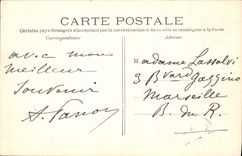 CARTE POSTALE
Certains pays étrangers n'acceptent pas la correspondance de ce côté se renseigner à la Poste
Correspondance
Adresse
avec mon
meilleur
Souvenir
A.
Madame
3 Bvard
Marseille
B. du R.